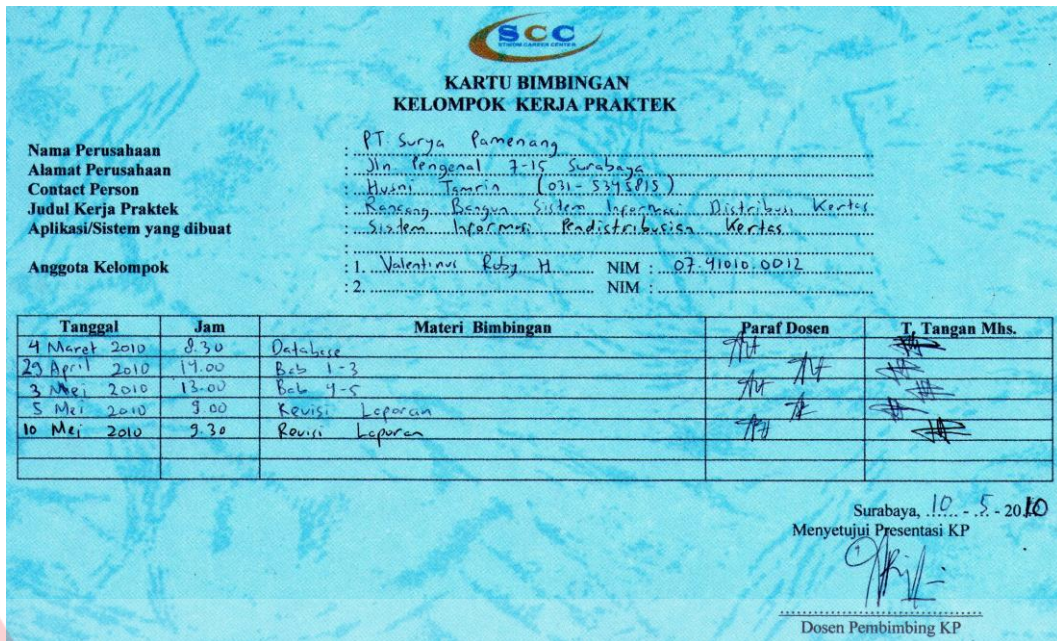 SCC
STIKOM CAREER CENTER
KARTU BIMBINGAN
KELOMPOK KERJA PRAKTEK
Nama Perusahaan : PT. Surya Pamenang
Alamat Perusahaan : Jln. Pengenal 7-15 Surabaya
Contact Person : Husni Tamrin (031-5345815)
Judul Kerja Praktek : Rancang Bangun Sistem Informasi Distribusi Kertas
Aplikasi/Sistem yang dibuat : Sistem Informasi Pendistribusian Kertas
:
Anggota Kelompok : 1. Valentinus Roby H NIM : 07.41010.0012
: 2. NIM :
Tanggal Jam Materi Bimbingan Paraf Dosen T. Tangan Mhs.
4 Maret 2010 8.30 Database
29 April 2010 14.00 Bab 1-3
3 Mei 2010 13.00 Bab 4-5
5 Mei 2010 9.00 Revisi Laporan
10 Mei 2010 9.30 Revisi Laporan
Surabaya, 10 - 5 - 2010
Menyetujui Presentasi KP
Dosen Pembimbing KP